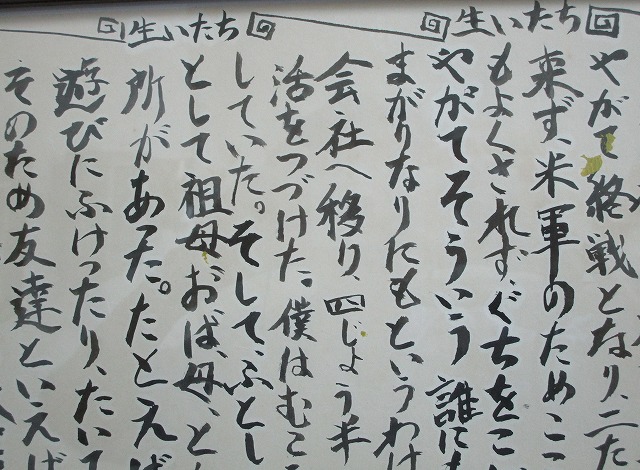 生いたち
生いたち
やがて終戦となり、二た
来ず、米軍のためこっ
もよくされず、ぐちをこ
やがてそういう誰に
まがりなりにもというわけ
会社へ移り、四じょう半
活をつづけた。僕はむこ
していた。そして、ふとし
として祖母、おば、母、と
所があった。たとえば
遊びにふけったり、たいて
そのため友達といえば